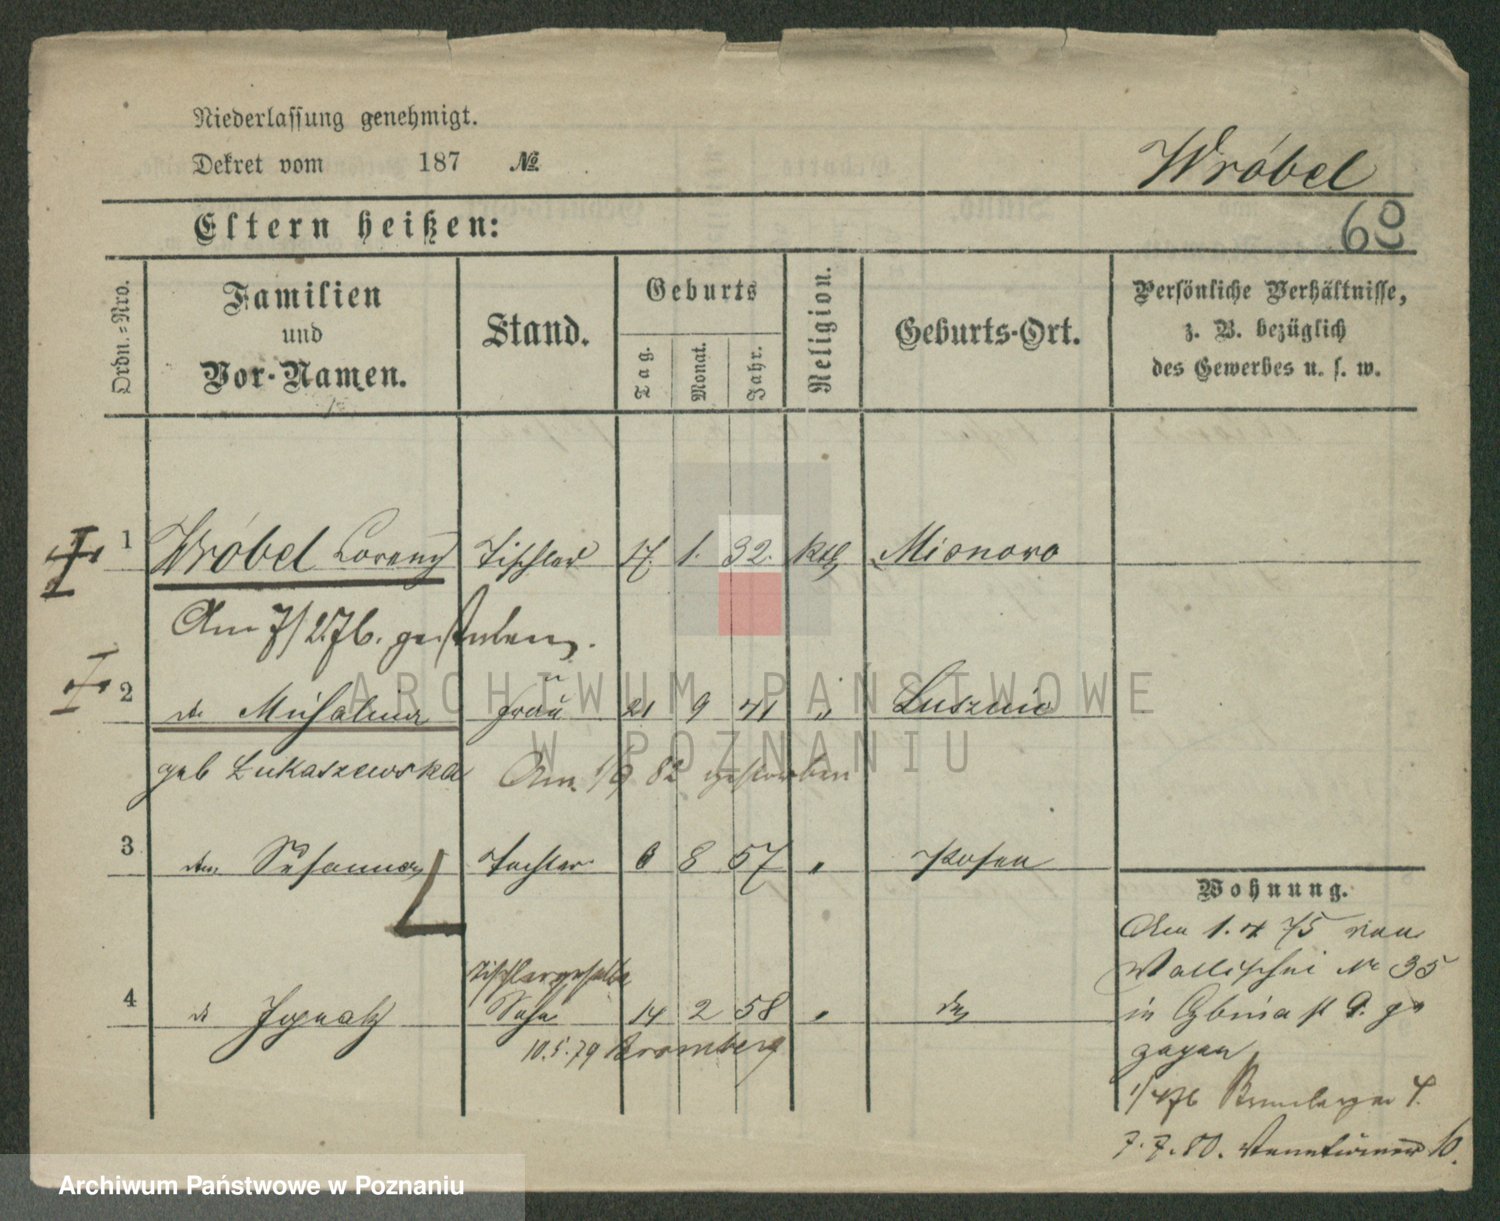 Niederlassung genehmigt.
Dekret vom 187 №
Wróbel
69
Eltern heißen:
Ordn.-Nro.
Familien
und
Vor-Namen.
Stand.
Geburts
Tag.
Monat.
Jahr.
Religion.
Geburts-Ort.
Persönliche Verhältnisse,
z. B. bezüglich
des Gewerbes u. s. w.
1 Wróbel Lorenz Tischler 17. 1. 32. kth
Am 7/2 76. gestorben.
2 do Michalina Frau 21 9 41 "
geb Lukaszewska Am 1/9 82 gestorben
3 Susanna Tochter 6 8 57 " Posen
Wohnung.
Am 1. 4 75 von
Wallischei No 35
in Cybina st 9. ge
zogen
Tischlergeselle
4 do Ignatz Sohn 14 2 58 " do
10.5.79 Bromberg
1/4 76 Bromberger 4.
7.7.80. 10.
ARCHIWUM PAŃSTWOWE
W POZNANIU
Archiwum Państwowe w Poznaniu